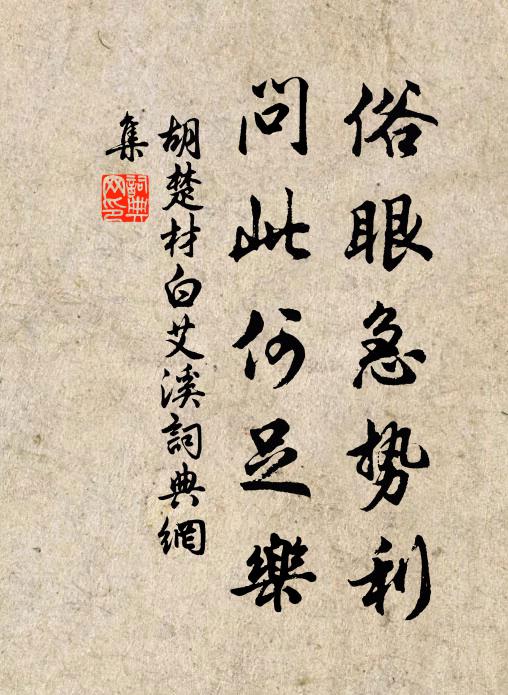 俗眼急势利
问此何足樂
胡楚材白艾溪詞典網
集
詞典
网印